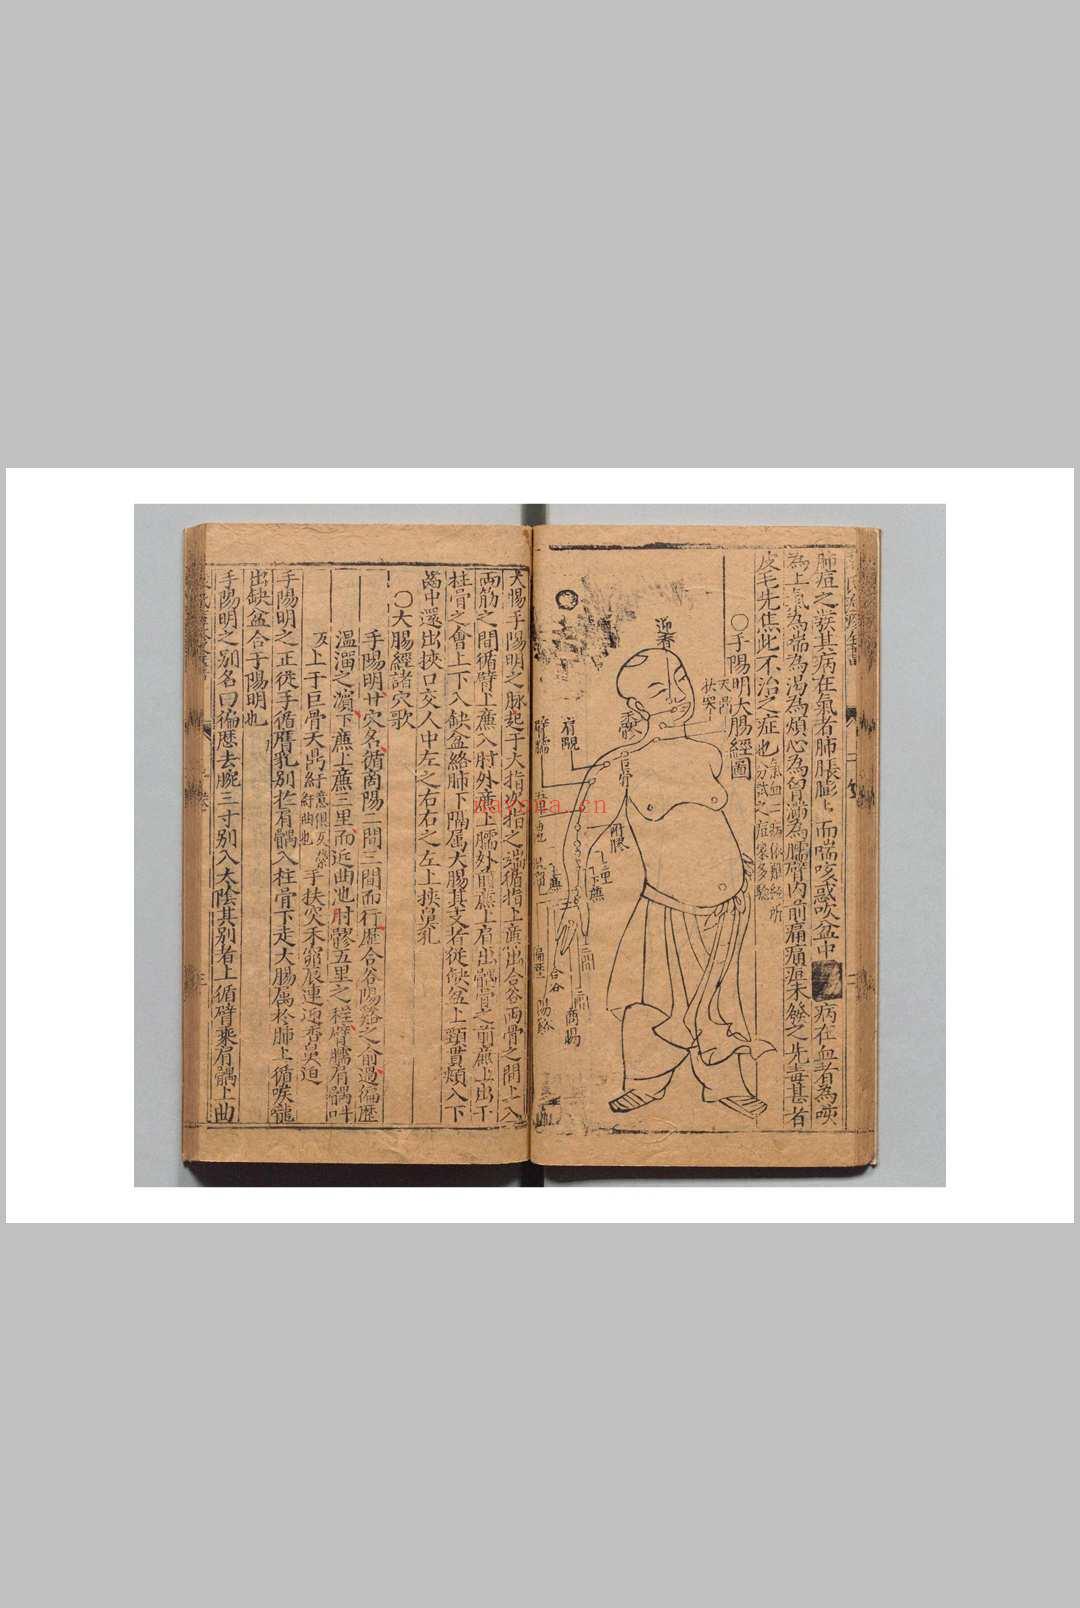 肺疽之發其病在氣者肺脹膨上而喘咳或吹盆中 病在血者為咳
為上氣為喘為渴為煩心為胷滿為臑臂內前痛痛疽未發之先毒甚者
皮毛先焦此不治之症也
○手陽明大腸經圖
迎香
天鼎
扶突
禾髎
巨骨
肩髃
臂臑
肘髎
三里
上廉
下廉
合谷
陽谿
二間
三間
商陽
大腸手陽明之脉起于大指次指之端循指上廉出合谷兩骨之間上入
兩筋之間循臂上廉入肘外廉上臑外前廉上肩出髃骨之前廉上出于
柱骨之會上下入缺盆絡肺下隔属大腸其支者從缺盆上頸貫頰入下
齒中還出挾口交人中左之右右之左上挾鼻孔
○大腸經諸穴歌
手陽明廿穴名循商陽二間三間而行歷合谷陽谿之俞過偏歷
温溜之濵下廉上廉三里而近曲池肘髎五里之程臂臑肩髃吽
上于巨骨天鼎紆 手扶突禾窌辰連迎香鼻迫
手陽明之正從手循膺乳别於肩髃入柱骨下走大腸属於肺上循喉嚨
出缺盆合于陽明也
手陽明之别名曰徧歷去腕三寸别入大陰其别者上循臂乘肩髃上曲
nayona.cn